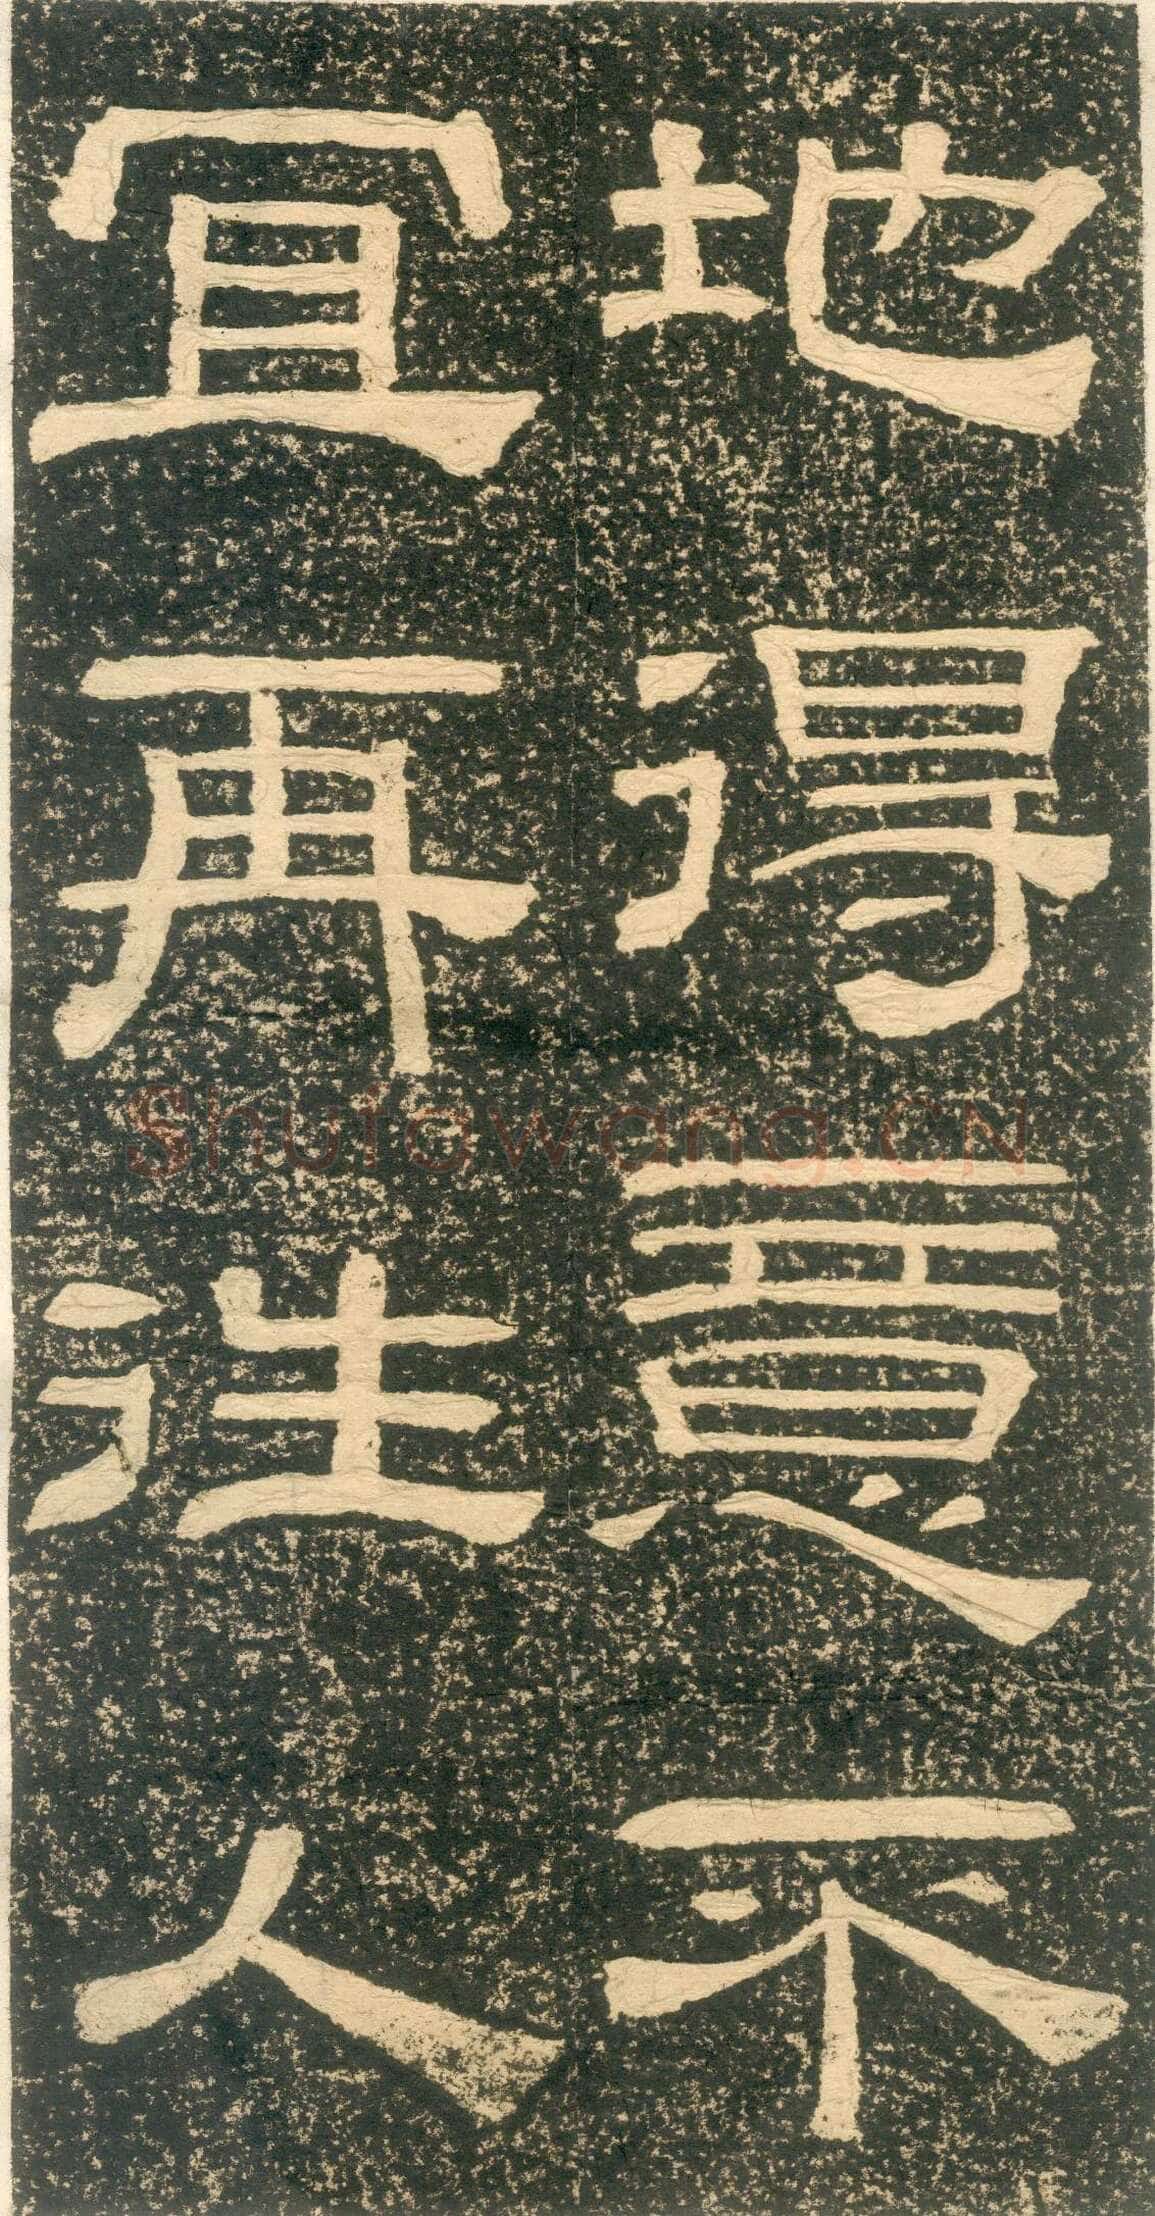 地得意不
宜再往人
Shufawang.CN